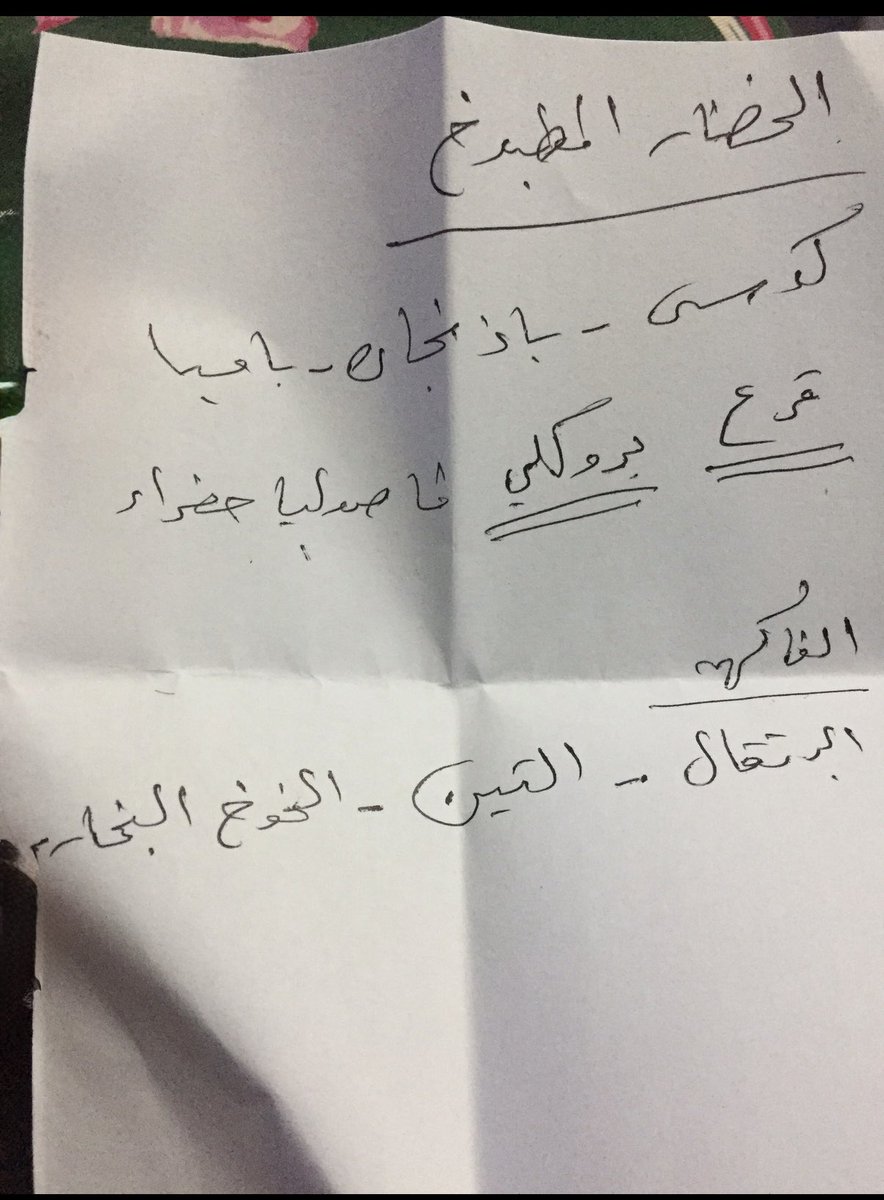 الخضار المطبوخ
كوسى - باذنجان - باميا
قرع بروكلي فاصوليا خضراء
الفاكهه
البرتقال - التين - الخوخ البخارى